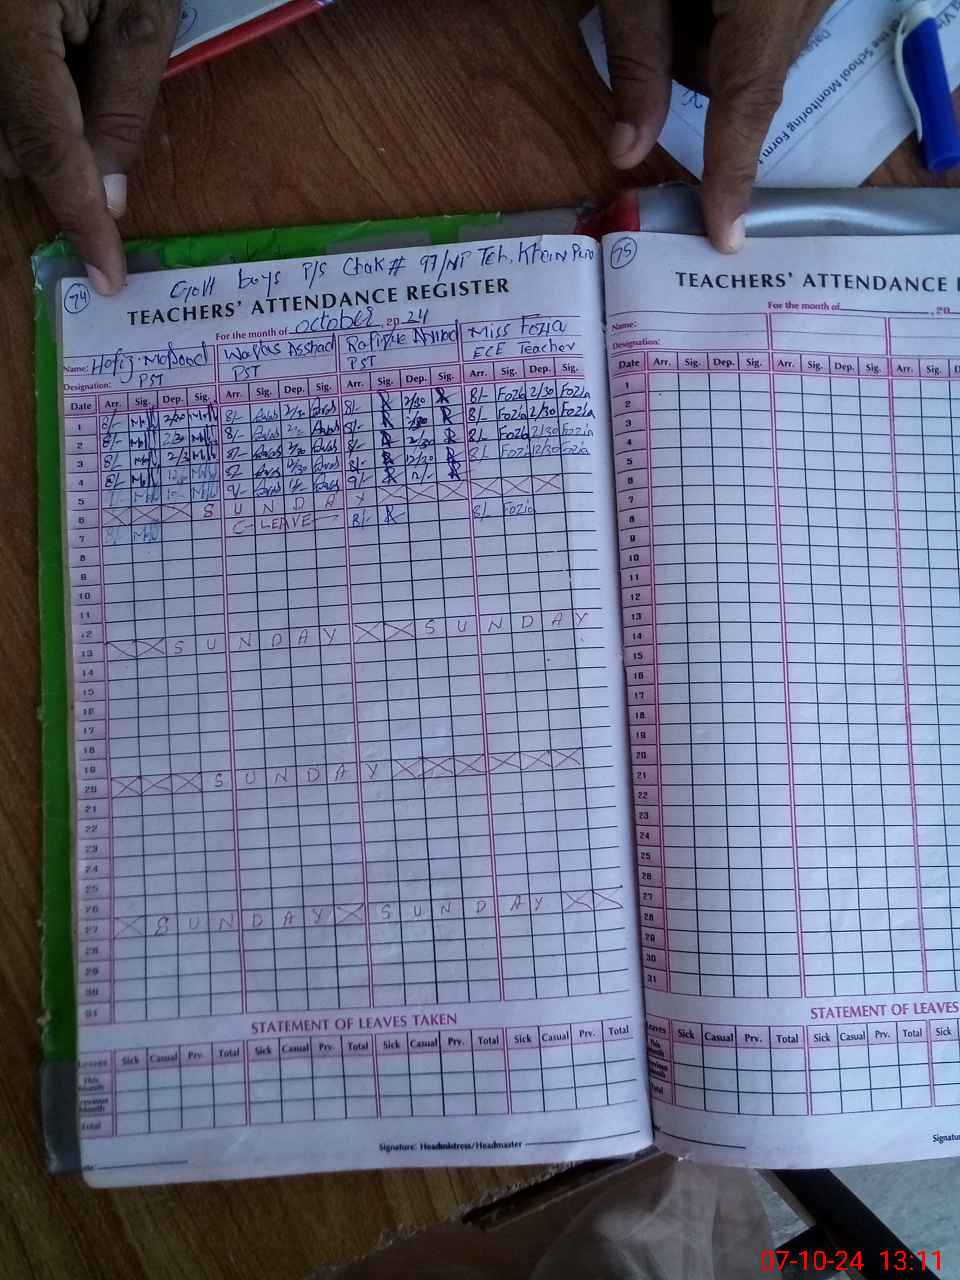 the School Monitoring Form
74
Govt boys P/S Chak # 97/NP Teh. Khan Pur
TEACHERS' ATTENDANCE REGISTER
For the month of October, 20 24
Name: Waqas Arshad Rafique Ahmad Miss Fozia
Designation: PST PST PST ECE Teacher
Date Arr. Sig. Dep. Sig. Arr. Sig. Dep. Sig. Arr. Sig. Dep. Sig. Arr. Sig. Dep. Sig.
1 8/- 2/30 8/- 2/30 8/- 2/30 8/- Fozia 2/30 Fozia
2 8/- 2/30 8/- 8/- 8/- Fozia 2/30 Fozia
3 8/- 2/30 8/- 2/30 8/- 2/30 8/- Fozia 2/30 Fozia
4 8/- 8/- 12/30 8/- 12/30 8/- Fozia 12/30 Fozia
5 9/- 9/-
6 S U N D A Y
7 8/- C-LEAVE 8/- 8/- Fozia
8
9
10
11
12
13 S U N D A Y S U N D A Y
14
15
16
17
18
19
20 S U N D A Y
21
22
23
24
25
26
27 S U N D A Y S U N D A Y
28
29
30
31
STATEMENT OF LEAVES TAKEN
Leaves Sick Casual Prv. Total Sick Casual Prv. Total Sick Casual Prv. Total Sick Casual Prv. Total
This Month
Previous Month
Total
Signature: Headmistress/Headmaster
75
TEACHERS' ATTENDANCE
For the month of , 20
Name:
Designation:
Date Arr. Sig. Dep. Sig. Arr. Sig. Dep. Sig. Arr. Sig.
1
2
3
4
5
6
7
8
9
10
11
12
13
14
15
16
17
18
19
20
21
22
23
24
25
26
27
28
29
30
31
STATEMENT OF LEAVES
Leaves Sick Casual Prv. Total Sick Casual Prv. Total Sick
This Month
Previous Month
Total
07-10-24 13:11